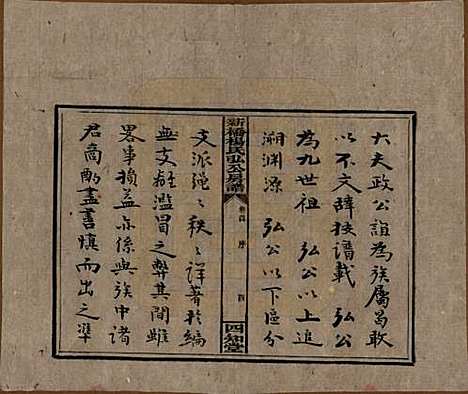 六夫政公誼為族屬曷敢
以不文辭按譜載 弘公
為九世祖 弘公以上追
溯淵源 弘公以下區分
新橋楊氏弘公房譜
卷首 序
四知堂
支派繩〻秩〻詳著於編
無支離濫冒之弊其間雖
畧事損益亦係與族中諸
君商酌盡善慎而出之準